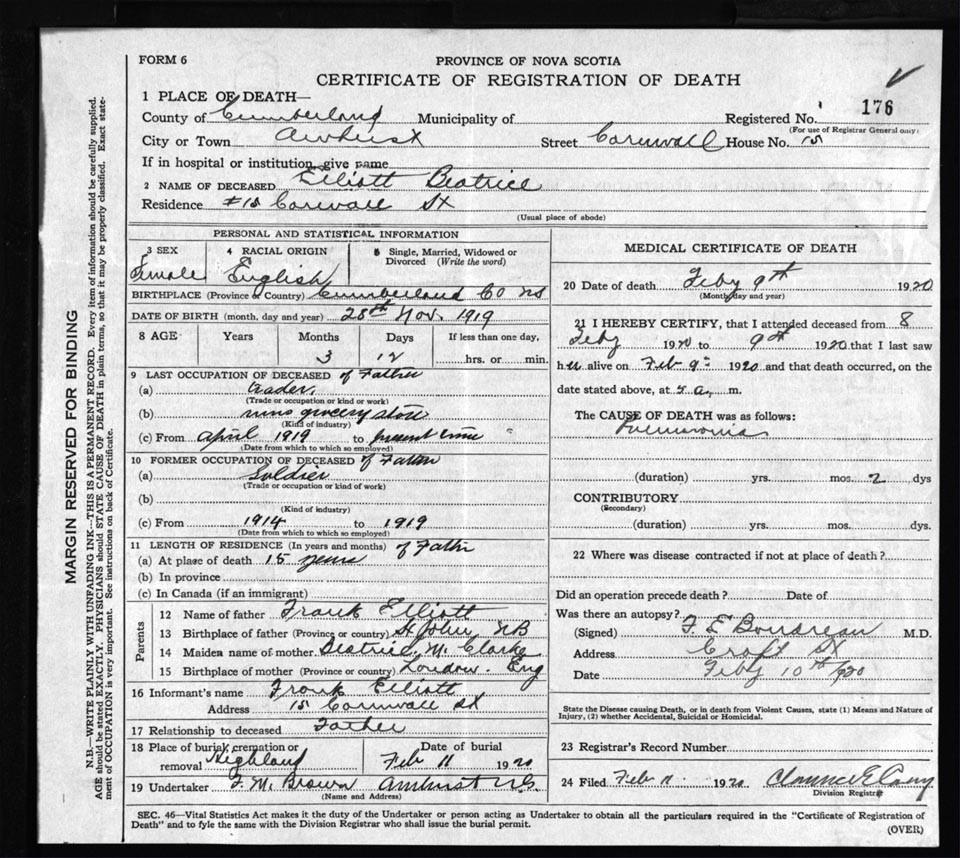 FORM 6
PROVINCE OF NOVA SCOTIA
CERTIFICATE OF REGISTRATION OF DEATH
1 PLACE OF DEATH—
County of Cumberland Municipality of Registered No. 176
(For use of Registrar General only)
City or Town Amherst Street Cornwall House No. 15
If in hospital or institution, give name
2 NAME OF DECEASED Elliott Beatrice
Residence #15 Cornwall St
(Usual place of abode)
PERSONAL AND STATISTICAL INFORMATION
3 SEX 4 RACIAL ORIGIN 5 Single, Married, Widowed or Divorced (Write the word)
Female English
BIRTHPLACE (Province or Country) Cumberland Co NS
DATE OF BIRTH (month, day and year) 28th Nov. 1919
8 AGE Years Months Days If less than one day,
3 12 hrs. or min.
9 LAST OCCUPATION OF DECEASED of Father
(a) trader
(Trade or occupation or kind or work)
(b) runs grocery store
(Kind of industry)
(c) From April 1919 to present time
(Date from which to which so employed)
10 FORMER OCCUPATION OF DECEASED of Father
(a) Soldier
(Trade or occupation or kind of work)
(b)
(Kind of industry)
(c) From 1914 to 1919
(Date from which to which so employed)
11 LENGTH OF RESIDENCE (In years and months) of Father
(a) At place of death 15 years
(b) In province
(c) In Canada (if an immigrant)
Parents
12 Name of father Frank Elliott
13 Birthplace of father (Province or country) St John NB
14 Maiden name of mother Beatrice M. Clarke
15 Birthplace of mother (Province or country) London. Eng
16 Informant's name Frank Elliott
Address 15 Cornwall St
17 Relationship to deceased Father
18 Place of burial, cremation or removal Highland Date of burial Feb 11 1920
19 Undertaker F. M. Brown Amherst N.S.
(Name and Address)
MEDICAL CERTIFICATE OF DEATH
20 Date of death Feby 9th 1920
(Month, day and year)
21 I HEREBY CERTIFY, that I attended deceased from 8
Feby 1920 to 9th 1920 that I last saw
her alive on Feb 9th 1920 and that death occurred, on the
date stated above, at 5 a. m.
The CAUSE OF DEATH was as follows:
Pneumonia
(duration) yrs. mos. 2 dys
CONTRIBUTORY
(Secondary)
(duration) yrs. mos. dys.
22 Where was disease contracted if not at place of death?
Did an operation precede death? Date of
Was there an autopsy?
(Signed) F. E Boudreau M.D.
Address Croft St
Date Feby 10th/920
State the Disease causing Death, or in death from Violent Causes, state (1) Means and Nature of
Injury, (2) whether Accidental, Suicidal or Homicidal.
23 Registrar's Record Number
24 Filed Feb 11 1920
Division Registrar
SEC. 46—Vital Statistics Act makes it the duty of the Undertaker or person acting as Undertaker to obtain all the particulars required in the "Certificate of Registration of
Death" and to fyle the same with the Division Registrar who shall issue the burial permit.
(OVER)
MARGIN RESERVED FOR BINDING
N.B.—WRITE PLAINLY, WITH UNFADING INK—THIS IS A PERMANENT RECORD. Every item of information should be carefully supplied.
AGE should be stated EXACTLY. PHYSICIANS should STATE CAUSE OF DEATH in plain terms, so that it may be properly classified. Exact state-
ment of OCCUPATION is very important. See instructions on back of Certificate.